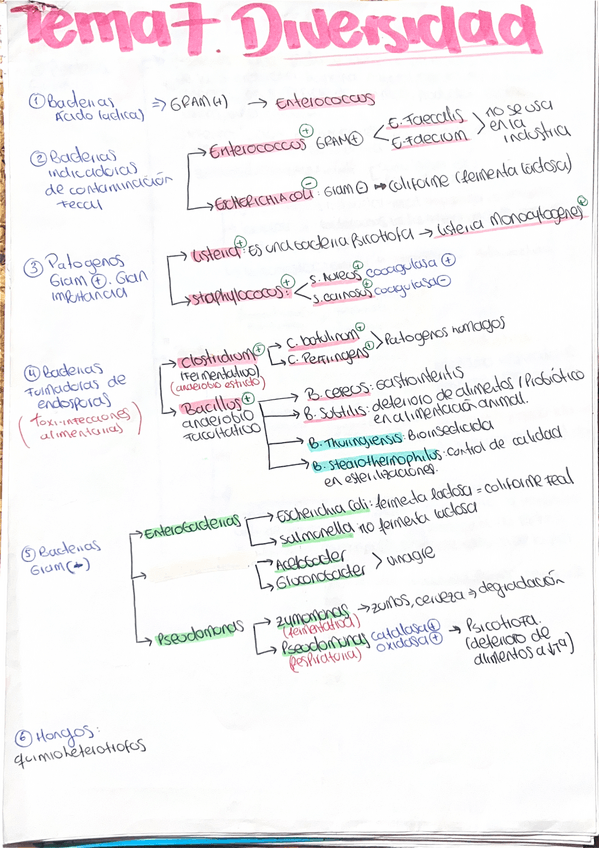 Tema 7. Diversidad
① Bacterias Ácido láctica) => GRAM(+) → Enterococcus
② Bacterias indicadoras de contaminación Fecal
Enterococcus + GRAM⊕ E. Faecalis E. Faecium > no se usa en la industria
ESCHERICHIA coli - : Gram ⊖ → coliforme (fermenta lactosa)
③ Patogenos Gram ⊕. Gran importancia
Listeria +: Es una bacteria psicotrofa → Listeria Monocytogenes +
Staphylococos +:
S. Aureus + coagulasa ⊕
S. carnosus + coagulasa ⊖
④ Bacterias Formadoras de endosporas
(toxi-infecciones alimentarias)
Clostridium + (Fermentativo) (anaerobio estricto)
C. botulinum +
C. Perfringens + > Patogenos humanos
Bacillos + anaerobio facultativo
B. cereus: Gastroenteritis
B. Subtilis: deterioro de alimentos / Probiótico en alimentación animal.
B. Thuringiensis: Bioinsecticida
B. Stearothermophilus: control de calidad en esterilizaciones.
⑤ Bacterias Gram (-)
Enterobacterias
Escherichia Coli: fermenta lactosa = coliforme real
Salmonella no fermenta lactosa
Acetobacter
Gluconobacter > vinagre
Pseudomonas
Zymomonas (fermentativa) → zumos, cerveza → degradación
Pseudomonas (respiratoria) catalasa ⊕ oxidasa ⊕ → Psicotrofa. (deterioro de alimentos a ↓Tª)
⑥ Hongos:
quimioheterotrofos